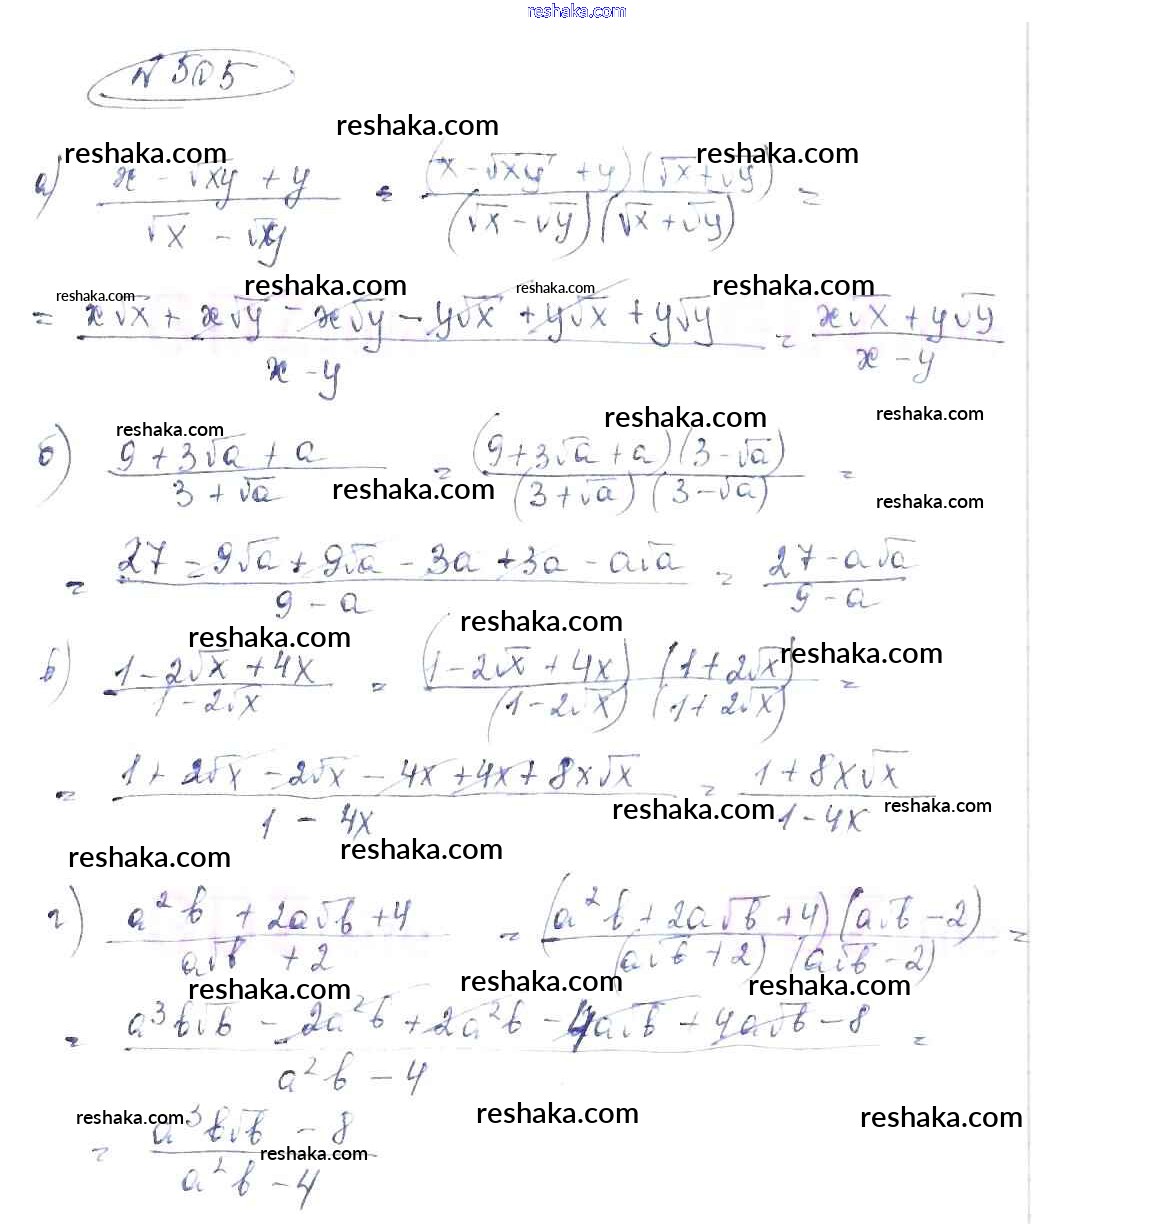 reshaka.com
№ 505
reshaka.com
reshaka.com reshaka.com
а) (x - √xy + y)/(√x - √y) = ((x - √xy + y)(√x + √y))/((√x - √y)(√x + √y)) =
reshaka.com reshaka.com
reshaka.com reshaka.com
= (x√x + x√y - x√y - y√x + y√x + y√y)/(x - y) = (x√x + y√y)/(x - y)
reshaka.com reshaka.com
reshaka.com
б) (9 + 3√a + a)/(3 + √a) = ((9 + 3√a + a)(3 - √a))/((3 + √a)(3 - √a)) =
reshaka.com
reshaka.com
= (27 - 9√a + 9√a - 3a + 3a - a√a)/(9 - a) = (27 - a√a)/(9 - a)
reshaka.com
reshaka.com
reshaka.com
в) (1 - 2√x + 4x)/(1 - 2√x) = ((1 - 2√x + 4x)(1 + 2√x))/((1 - 2√x)(1 + 2√x)) =
= (1 + 2√x - 2√x - 4x + 4x + 8x√x)/(1 - 4x) = (1 + 8x√x)/(1 - 4x)
reshaka.com reshaka.com
reshaka.com reshaka.com
г) (a²b + 2a√b + 4)/(a√b + 2) = ((a²b + 2a√b + 4)(a√b - 2))/((a√b + 2)(a√b - 2)) =
reshaka.com reshaka.com reshaka.com
= (a³b√b - 2a²b + 2a²b - 4a√b + 4a√b - 8)/(a²b - 4) =
reshaka.com reshaka.com reshaka.com
= (a³b√b - 8)/(a²b - 4)
reshaka.com